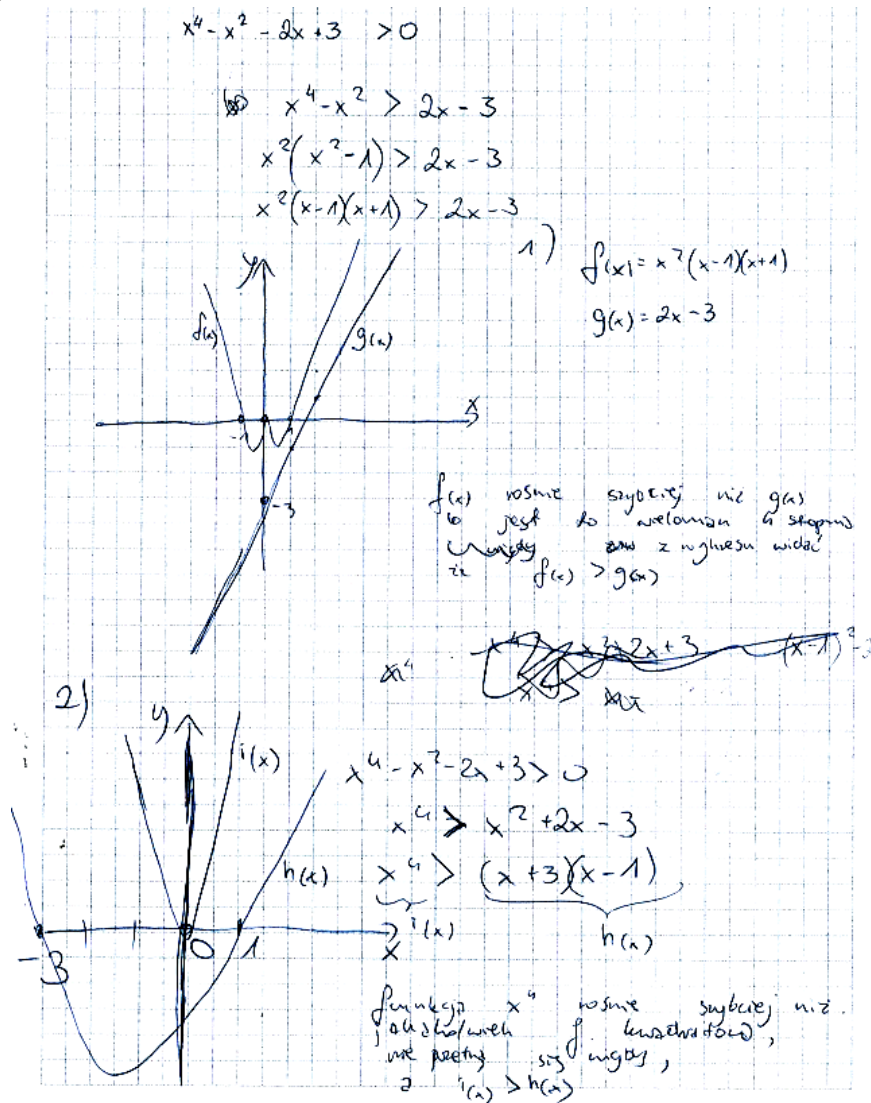 x⁴ - x² - 2x + 3 > 0
x⁴ - x² > 2x - 3
x²(x² - 1) > 2x - 3
x²(x-1)(x+1) > 2x - 3
1)
f(x) = x²(x-1)(x+1)
g(x) = 2x - 3
y
f(x)
g(x)
x
-1
-3
f(x) rośnie szybciej niż g(x)
bo jest to wielomian 4 stopnia
z wykresu widać
że f(x) > g(x)
2)
y
i(x)
x⁴ - x² - 2x + 3 > 0
x⁴ > x² + 2x - 3
h(x)
x⁴ > (x+3)(x-1)
i(x)
h(x)
-3
0
1
x
funkcja x⁴ rośnie szybciej niż
jakakolwiek f. kwadratowa,
nie przetną się nigdy,
a i(x) > h(x)